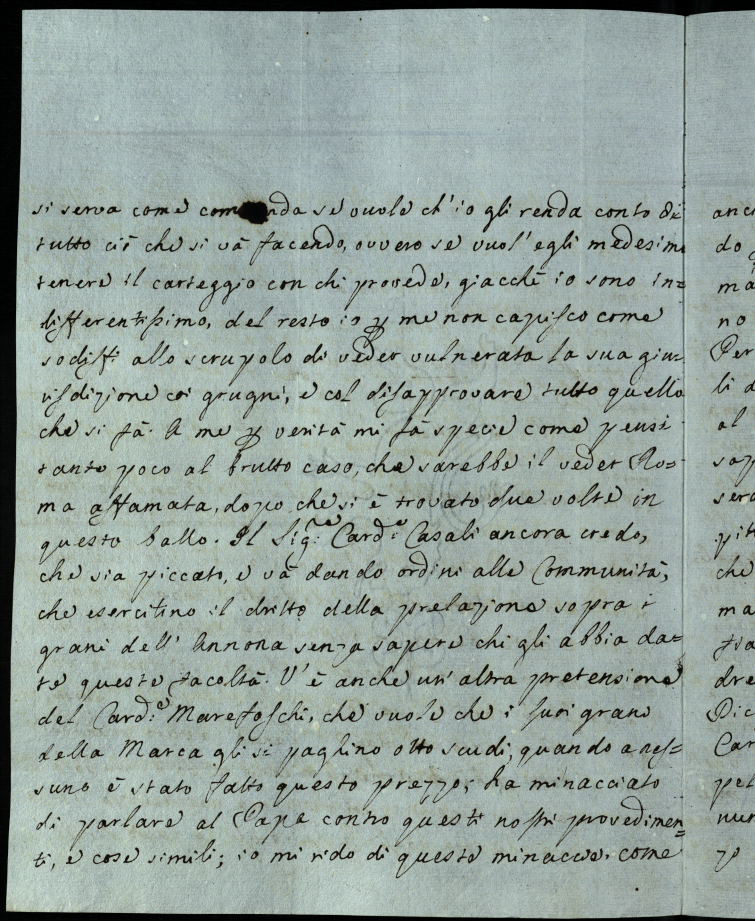 si serva come comanda se vuole ch'io gli renda conto di
tutto ciò che si và facendo, ovvero se vuol'egli medesimo
tenere il carteggio con chi provede, giacchè io sono in=
differentissimo, del resto io p me non capisco come
sodisfi allo scrupolo di veder vulnerata la sua giu=
risdizione coi grugni, e col disapprovare tutto quello
che si fà. A me p verità mi fà specie come pensi
tanto poco al brutto caso, che sarebbe il veder Ro=
ma affamata, dopo che si è trovato due volte in
questo ballo. Il Sig.e Card.e Casali ancora credo,
che sia piccato, e và dando ordini alle Communità,
che esercitino il dritto della prelazione sopra i
grani dell' Annona senza sapere chi gli abbia da=
te queste facoltà. V'è anche un'altra pretensione
del Card.e Marefoschi, che vuole che i suoi grani
della Marca gli si paghino otto scudi, quando a nes=
suno è stato fatto questo prezzo; ha minacciato
di parlare al Papa contro questi nostri provedimen=
ti, e cose simili; io mi rido di queste minacce, come
anco
do
ma
no
Per
li d
al
sap
sera
pit
che
ma
dre
Dic
Car
pet
nun
zo